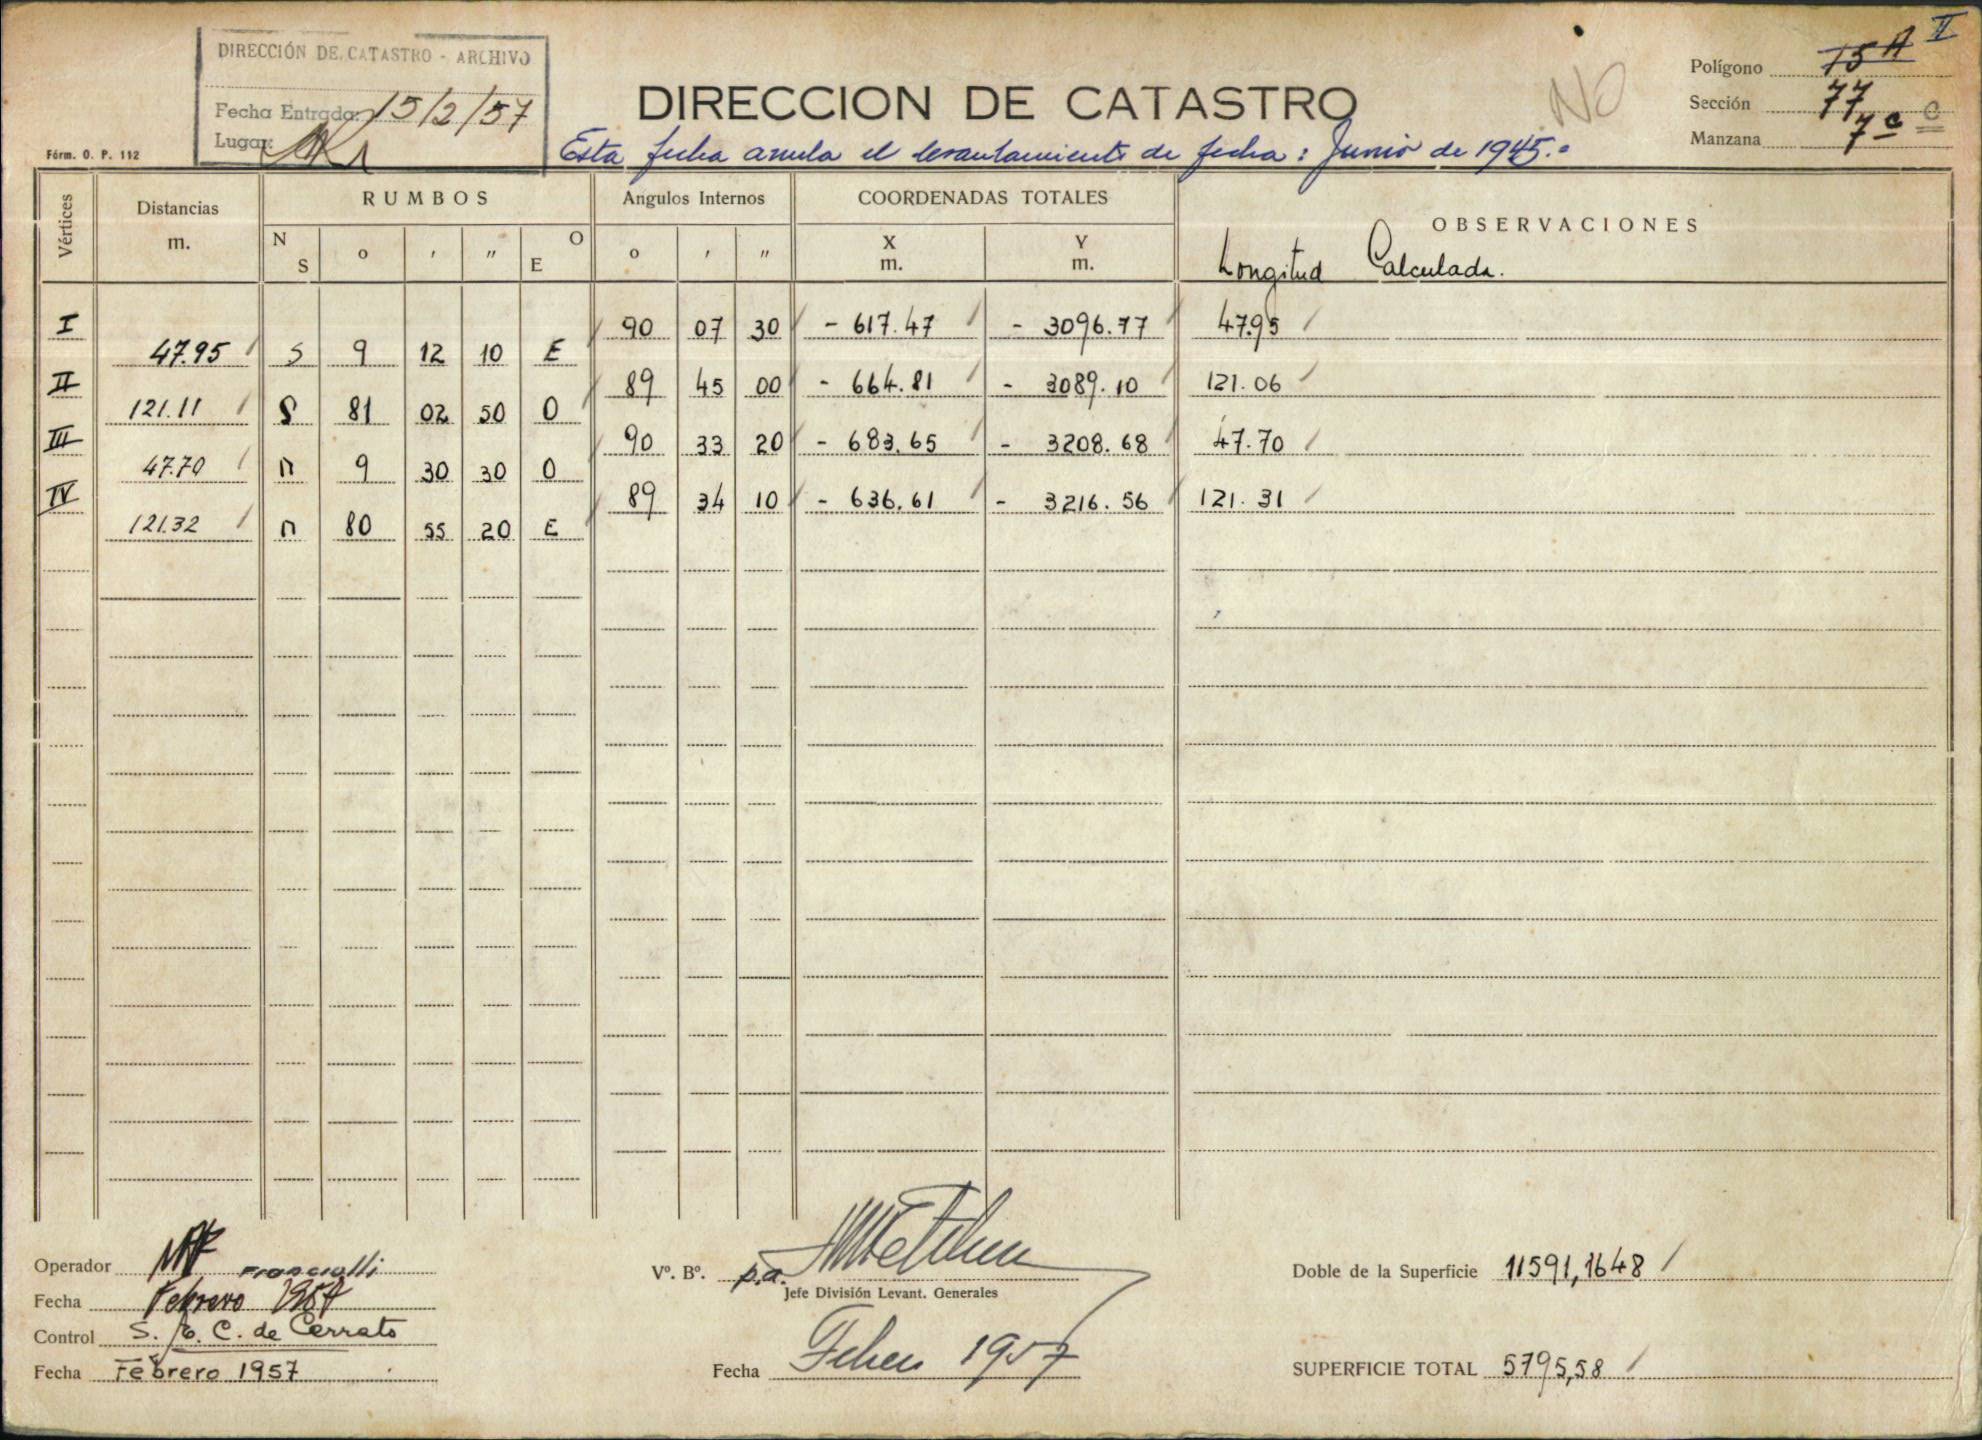 DIRECCIÓN DE CATASTRO - ARCHIVO
Fecha Entrada: 15/2/57
Lugar:
Fórm. O. P. 112
DIRECCION DE CATASTRO
Esta fecha anula el levantamiento de fecha: Junio de 1945.=
NO
Polígono 75A II
Sección 77
Manzana 7c c
Vértices Distancias m. RUMBOS Angulos Internos COORDENADAS TOTALES OBSERVACIONES
N S o ' " O E o ' " X m. Y m. Longitud Calculada.
I 90 07 30 - 617.47 - 3096.77 47.95
47.95 S 9 12 10 E
II 89 45 00 - 664.81 - 3089.10 121.06
121.11 S 81 02 50 O
III 90 33 20 - 683.65 - 3208.68 47.70
47.70 n 9 30 30 O
IV 89 34 10 - 636.61 - 3216.56 121.31
121.32 n 80 55 20 E
Operador
Fecha Febrero 1957
Control S. E. C. de Cerrato
Fecha Febrero 1957
Vº. Bº. p.a.
Jefe División Levant. Generales
Fecha Febrero 1957
Doble de la Superficie 11591,1648
SUPERFICIE TOTAL 5795,58